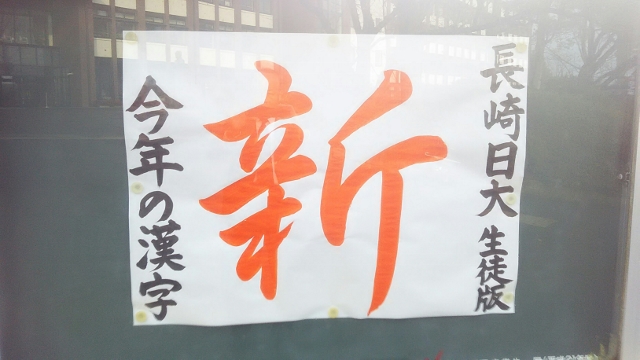 長崎日大 生徒版
新
今年の漢字